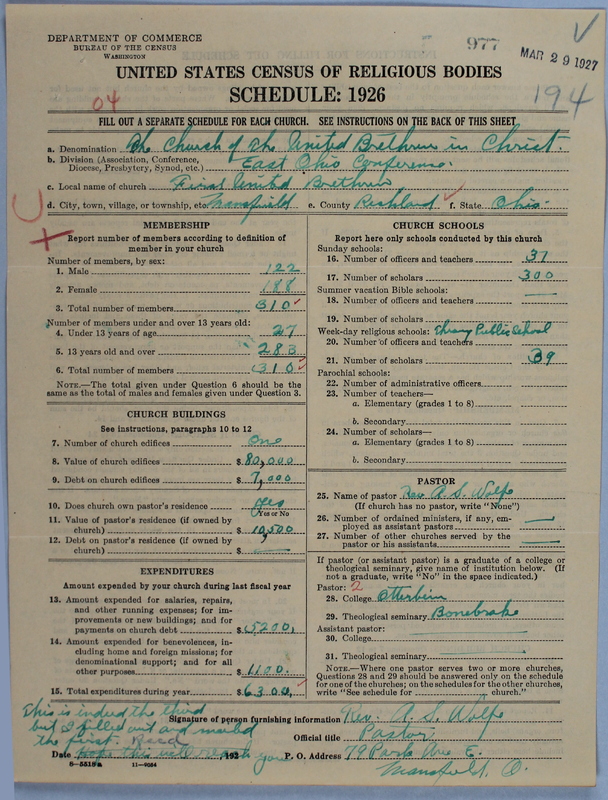 DEPARTMENT OF COMMERCE
BUREAU OF THE CENSUS
WASHINGTON
977
MAR 29 1927
194
UNITED STATES CENSUS OF RELIGIOUS BODIES
SCHEDULE: 1926
04
FILL OUT A SEPARATE SCHEDULE FOR EACH CHURCH. SEE INSTRUCTIONS ON THE BACK OF THIS SHEET
a. Denomination The Church of the United Brethren in Christ.
b. Division (Association, Conference, Diocese, Presbytery, Synod, etc.) East Ohio Conference.
c. Local name of church First United Brethren
d. City, town, village, or township, etc. Mansfield e. County Richland f. State Ohio
MEMBERSHIP
Report number of members according to definition of member in your church
Number of members, by sex:
1. Male 122
2. Female 188
3. Total number of members 310
Number of members under and over 13 years old:
4. Under 13 years of age 27
5. 13 years old and over 283
6. Total number of members 310
NOTE.—The total given under Question 6 should be the same as the total of males and females given under Question 3.
CHURCH BUILDINGS
See instructions, paragraphs 10 to 12
7. Number of church edifices One
8. Value of church edifices $ 80,000
9. Debt on church edifices $ 7,000
10. Does church own pastor's residence yes
(Yes or No
11. Value of pastor's residence (if owned by church) $ 10,500
12. Debt on pastor's residence (if owned by church) $ —
EXPENDITURES
Amount expended by your church during last fiscal year
13. Amount expended for salaries, repairs, and other running expenses; for improvements or new buildings; and for payments on church debt $ 5200.
14. Amount expended for benevolences, including home and foreign missions; for denominational support; and for all other purposes $ 1100.
15. Total expenditures during year $ 6300.
CHURCH SCHOOLS
Report here only schools conducted by this church
Sunday schools:
16. Number of officers and teachers 37
17. Number of scholars 300
Summer vacation Bible schools:
18. Number of officers and teachers —
19. Number of scholars
Week-day religious schools: Public School
20. Number of officers and teachers
21. Number of scholars 39
Parochial schools:
22. Number of administrative officers
23. Number of teachers—
a. Elementary (grades 1 to 8)
b. Secondary
24. Number of scholars—
a. Elementary (grades 1 to 8)
b. Secondary
PASTOR
25. Name of pastor Rev. A. S. Wolfe
(If church has no pastor, write "None")
26. Number of ordained ministers, if any, employed as assistant pastors —
27. Number of other churches served by the pastor or his assistants —
If pastor (or assistant pastor) is a graduate of a college or theological seminary, give name of institution below. (If not a graduate, write "No" in the space indicated.)
Pastor: 2
28. College Otterbein
29. Theological seminary Bonebrake
Assistant pastor:
30. College
31. Theological seminary
NOTE.—Where one pastor serves two or more churches, Questions 28 and 29 should be answered only on the schedule for one of the churches; on the schedules for the other churches, write "See schedule for ____ church."
This is indeed the third
but I filled out and mailed
the first.
Signature of person furnishing information Rev. A. S. Wolfe
Official title Pastor
Date Hope this will reach you 192
P. O. Address 79 Park Ave E.
Mansfield, O.
8—5518a 11—9054